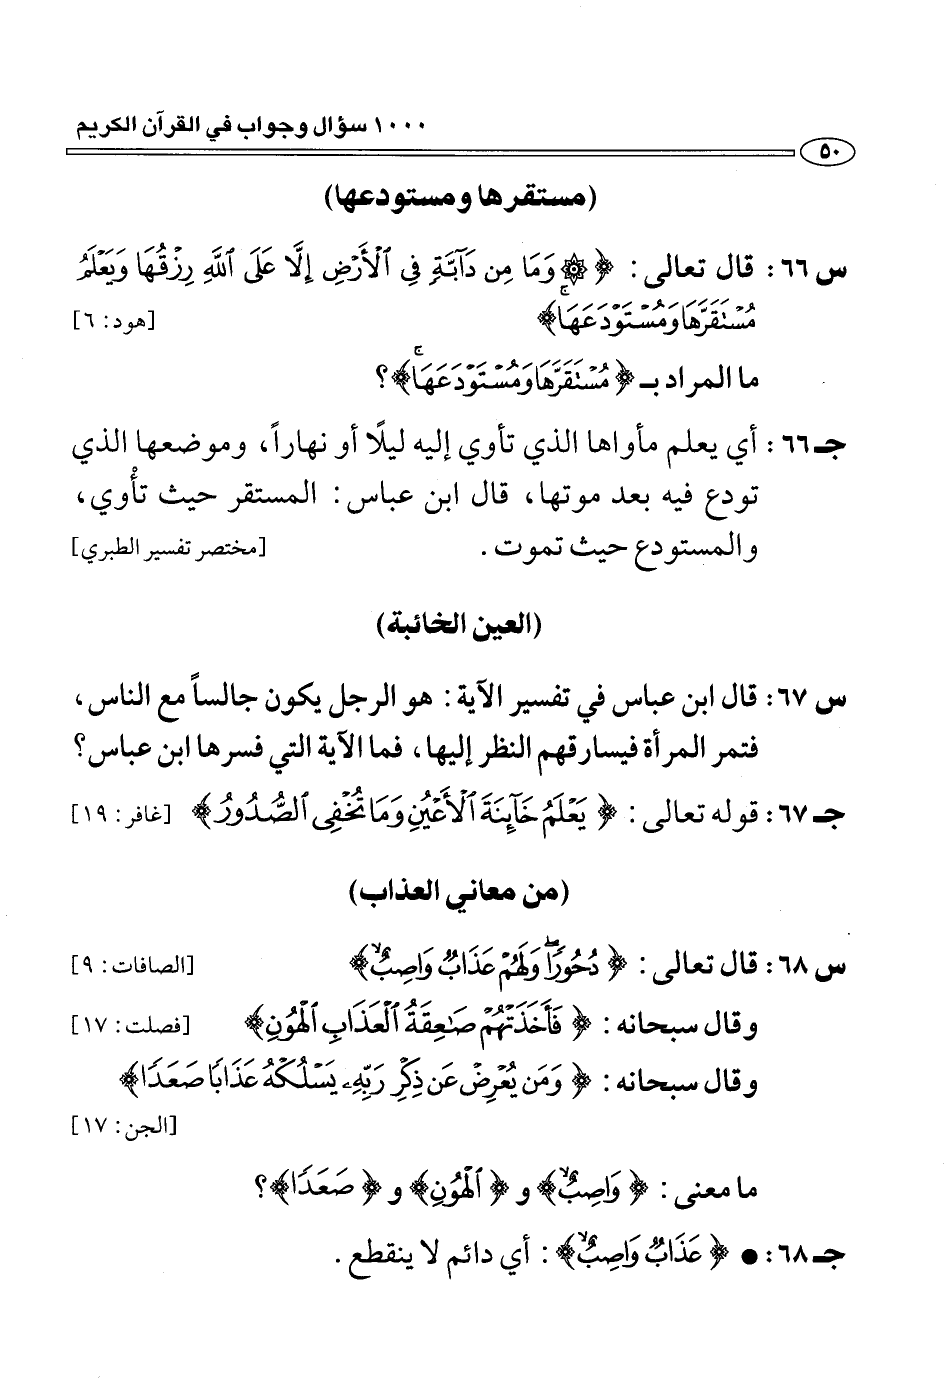 ١٠٠٠ سؤال وجواب في القرآن الكريم
٥٠
(مستقرها ومستودعها)
س ٦٦: قال تعالى: ﴿۞ وَمَا مِن دَآبَّةٍ فِي ٱلْأَرْضِ إِلَّا عَلَى ٱللَّهِ رِزْقُهَا وَيَعْلَمُ
مُسْتَقَرَّهَا وَمُسْتَوْدَعَهَاۚ﴾ [هود: ٦]
ما المراد بـ ﴿مُسْتَقَرَّهَا وَمُسْتَوْدَعَهَاۚ﴾؟
جـ ٦٦: أي يعلم مأواها الذي تأوي إليه ليلًا أو نهاراً، وموضعها الذي
تودع فيه بعد موتها، قال ابن عباس: المستقر حيث تأْوي،
والمستودع حيث تموت. [مختصر تفسير الطبري]
(العين الخائبة)
س ٦٧: قال ابن عباس في تفسير الآية: هو الرجل يكون جالساً مع الناس،
فتمر المرأة فيسارقهم النظر إليها، فما الآية التي فسرها ابن عباس؟
جـ ٦٧: قوله تعالى: ﴿يَعْلَمُ خَآئِنَةَ ٱلْأَعْيُنِ وَمَا تُخْفِى ٱلصُّدُورُ﴾ [غافر: ١٩]
(من معاني العذاب)
س ٦٨: قال تعالى: ﴿دُحُورًاۖ وَلَهُمْ عَذَابٌ وَاصِبٌۙ﴾ [الصافات: ٩]
وقال سبحانه: ﴿فَأَخَذَتْهُمْ صَٰعِقَةُ ٱلْعَذَابِ ٱلْهُونِ﴾ [فصلت: ١٧]
وقال سبحانه: ﴿وَمَن يُعْرِضْ عَن ذِكْرِ رَبِّهِۦ يَسْلُكْهُ عَذَابًا صَعَدًا﴾
[الجن: ١٧]
ما معنى: ﴿وَاصِبٌۙ﴾ و ﴿ٱلْهُونِ﴾ و ﴿صَعَدًا﴾؟
جـ ٦٨: ● ﴿عَذَابٌ وَاصِبٌۙ﴾: أي دائم لا ينقطع.